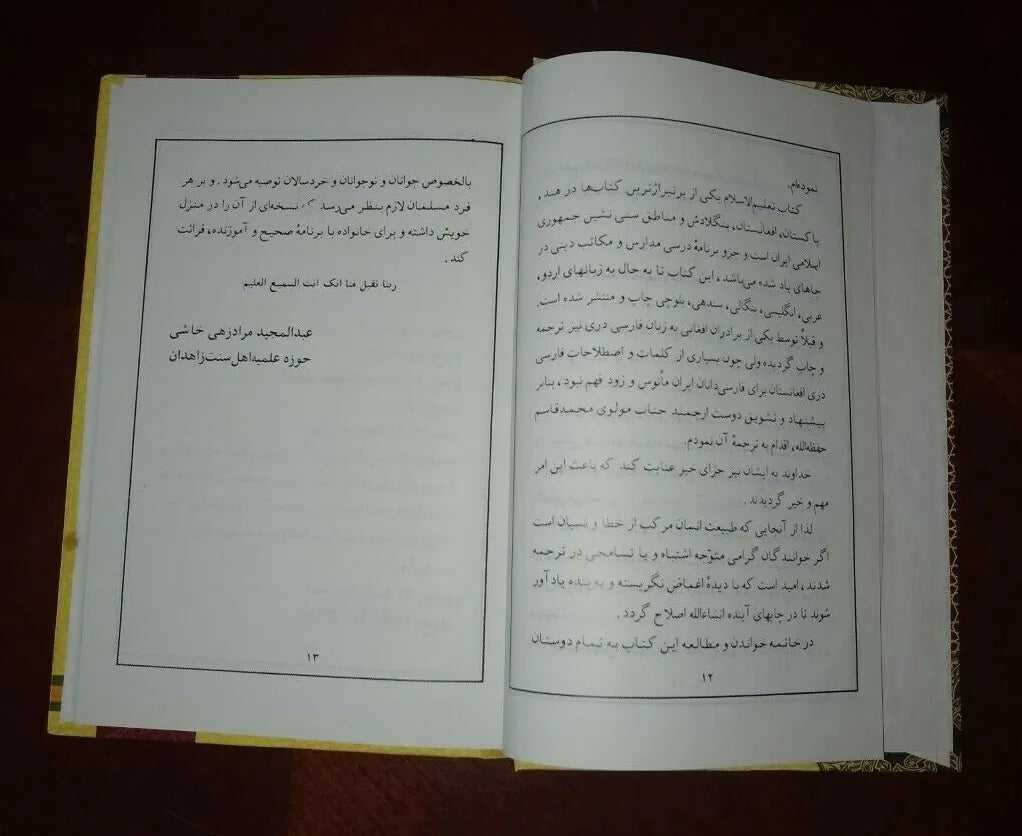 نموده‌ام.
کتاب تعلیم‌الاسلام یکی از پرتیراژترین کتاب‌ها در هند،
پاکستان، افغانستان، بنگلادش و مناطق سنی نشین جمهوری
اسلامی ایران است و جزو برنامهٔ درسی مدارس و مکاتب دینی در
جاهای یاد شده می‌باشد، این کتاب تا به حال به زبانهای اردو،
عربی، انگلیسی، بنگالی، سندهی، بلوچی چاپ و منتشر شده است.
و قبلاً توسط یکی از برادران افغانی به زبان فارسی دری نیز ترجمه
و چاپ گردیده ولی چون بسیاری از کلمات و اصطلاحات فارسی
دری افغانستان برای فارسی‌دانان ایران مأنوس و زود فهم نبود، بنابر
پیشنهاد و تشویق دوست ارجمند جناب مولوی محمدقاسم
حفظه‌الله، اقدام به ترجمهٔ آن نمودم.
خداوند به ایشان نیز جزای خیر عنایت کند که باعث این امر
مهم و خیر گردیدند.
لذا از آنجایی که طبیعت انسان مرکب از خطا و نسیان است
اگر خوانندگان گرامی متوّجه اشتباه و یا تسامحی در ترجمه
شدند، امید است که با دیدهٔ اغماض نگریسته و به بنده یادآور
شوند تا در چاپهای آینده انشاءالله اصلاح گردد.
در خاتمه خواندن و مطالعه این کتاب به تمام دوستان
۱۲
بالخصوص جوانان و نوجوانان و خردسالان توصیه می‌شود. و بر هر
فرد مسلمان لازم بنظر می‌رسد که نسخه‌ای از آن را در منزل
خویش داشته و برای خانواده با برنامهٔ صحیح و آموزنده، قرائت
کند.
ربنا تقبل منا انک انت السمیع العلیم
عبدالمجید مرادزهی خاشی
حوزه علمیه‌اهل‌سنت‌زاهدان
۱۳